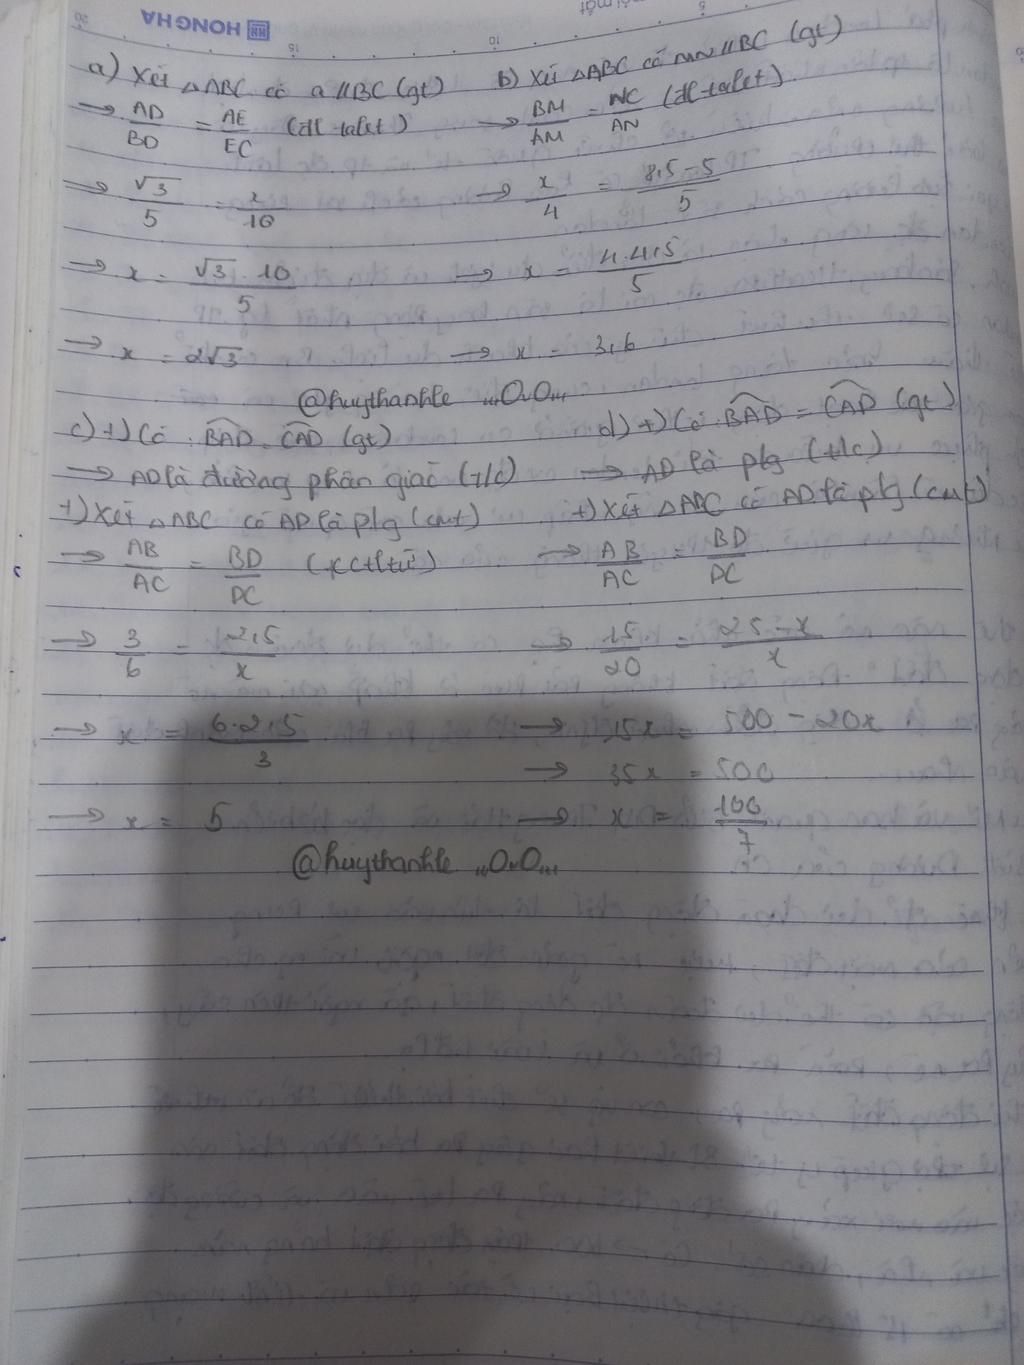 HONG HA
a) Xét △ABC có a // BC (gt)
→ AD/BD = AE/EC (đl talet)
→ √3/5 = x/10
→ x = √3 . 10/5
→ x = 2√3
b) Xét △ABC có MN // BC (gt)
→ BM/AM = NC/AN (đl talet)
→ x/4 = 8,5 - 5/5
→ x = 4.4,5/5
→ x = 3,6
@huythanhle ,,,OvO,,,
c) +) Có BAD = CAD (gt)
→ AD là đường phân giác (t/c)
+) Xét △ABC có AD là plg (cmt)
→ AB/AC = BD/DC
→ 3/6 = 2,5/x
→ x = 6.2,5/3
→ x = 5
d) +) Có BAD = CAD (gt)
→ AD là plg (t/c)
+) Xét △ABC có AD là plg (cmt)
→ AB/AC = BD/DC
→ 15/20 = 25 - x/x
→ 15x = 500 - 20x
→ 35x = 500
→ x = 100/7
@huythanhle ,,,OvO,,,